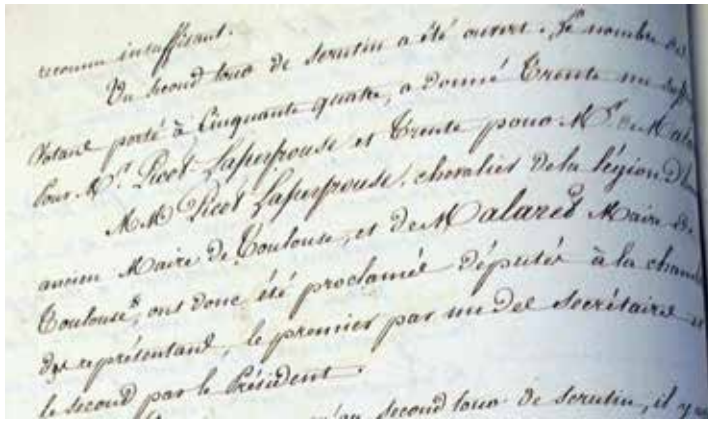 reconnu insuffisant.
Un second tour de scrutin a été ouvert. Le nombre des
Votans porté à Cinquante quatre, a donné Trente un
Pour Mr. Picot Laperpouse et Trente pour Mr. de Mala
MM Picot Laperpouse, chevalier de la légion d'hon
ancien Maire de Toulouse, et de Malaret Maire de
Toulouse, ont donc été proclamés députés à la cham
des représentans, le premier par un des Secrétaires et
le second par le Président.
second tour de scrutin, il y